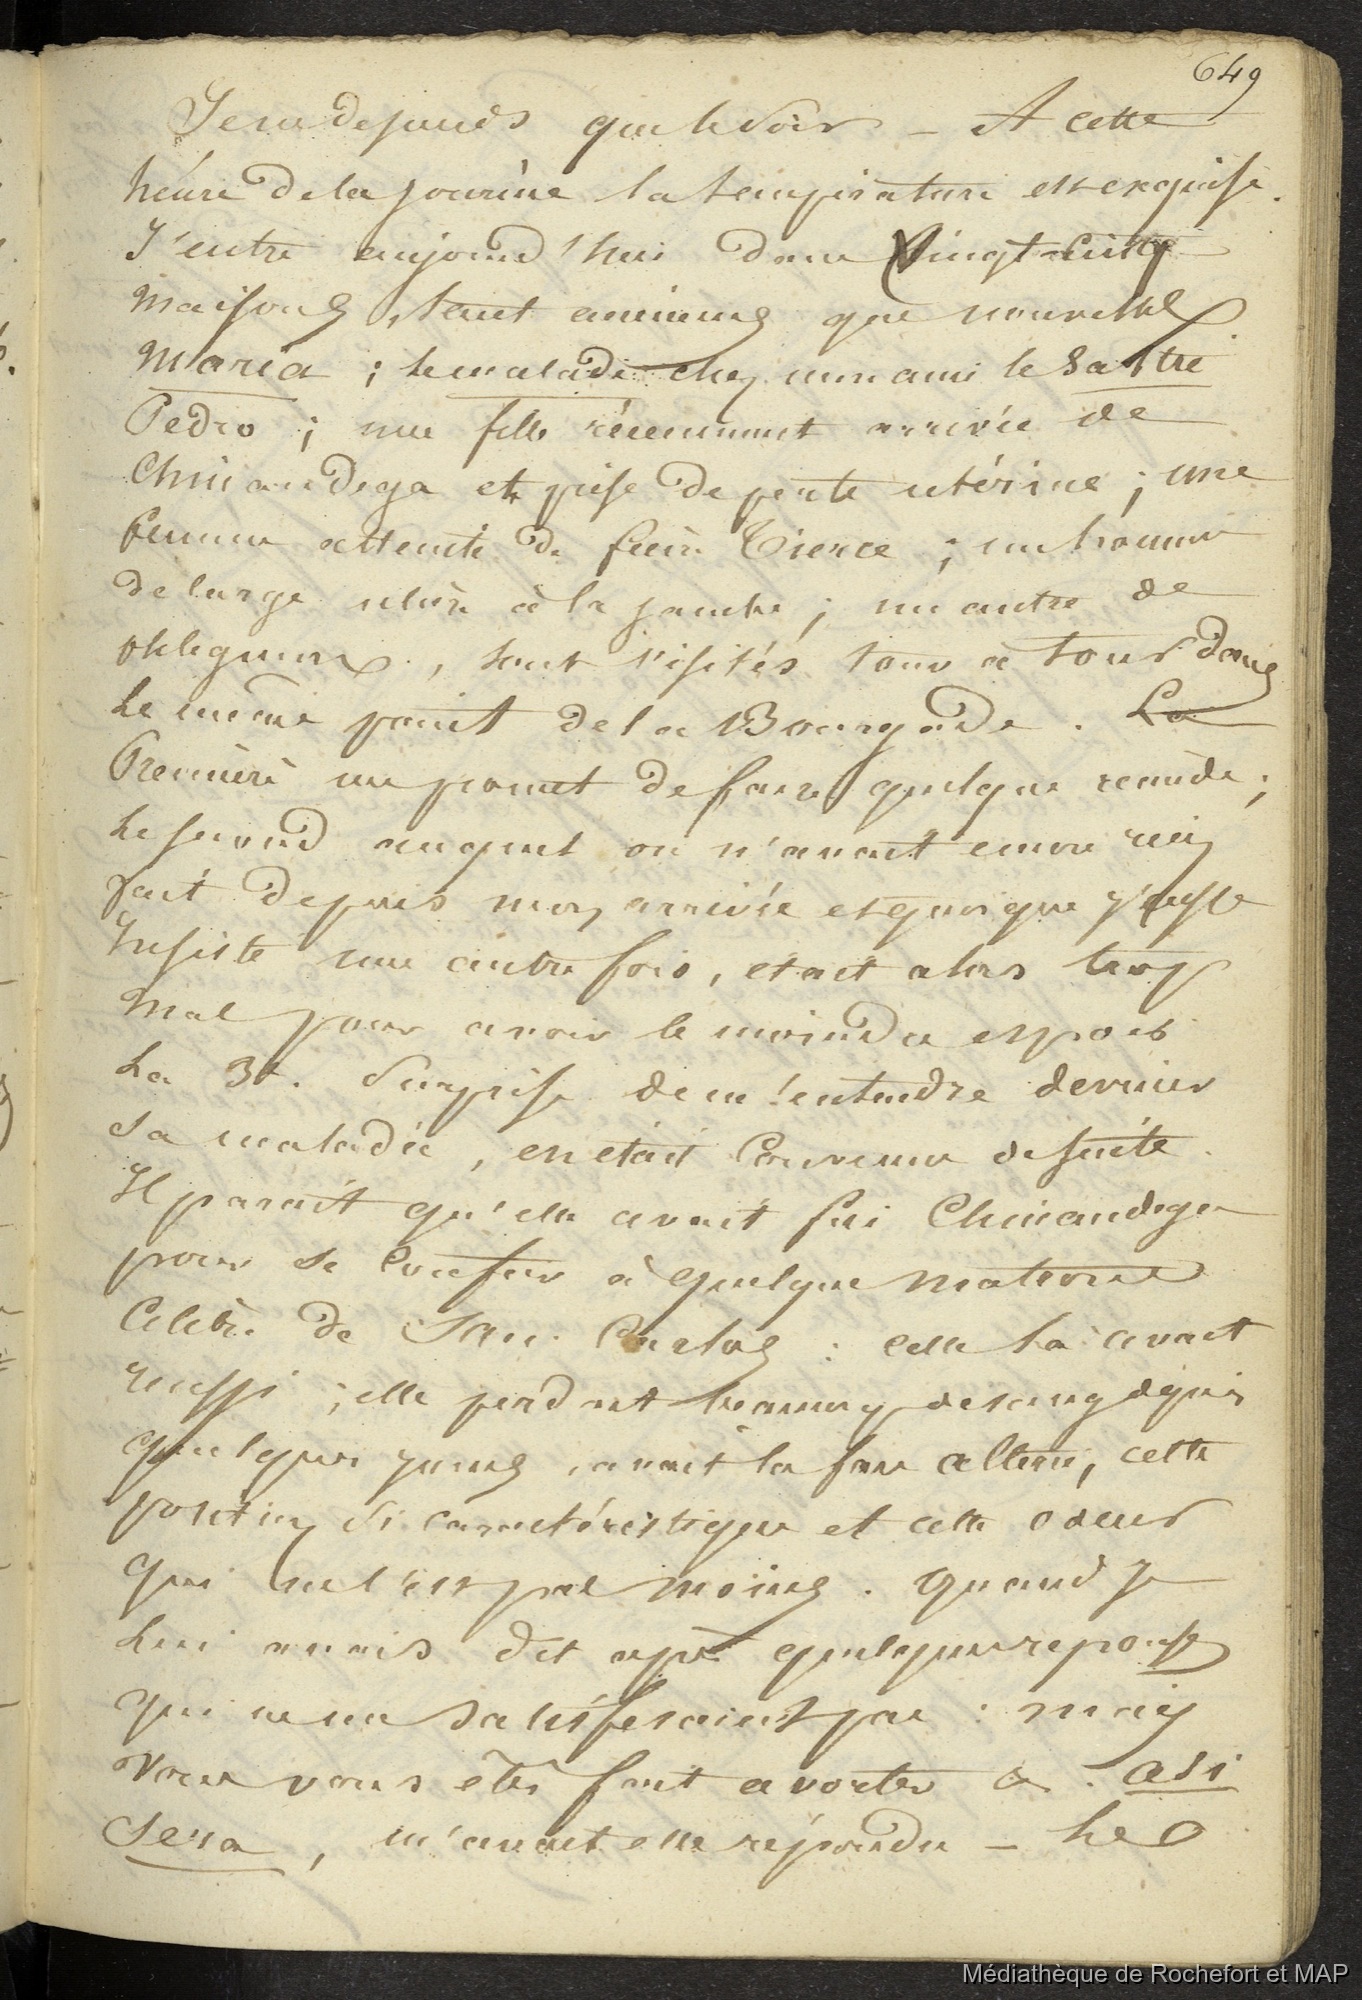 649
Je ne dejeunes que le soir _ A cette
heure de la journée la température est exquise.
J'entre aujourd'hui dans Vingt-huit
maisons, tant anciennes que nouvelles
Maria ; le malade chez mon ami le Sastre
Pedro ; une fille récemment arrivée de
Chinandega et prise de perte utérine ; une
femme atteinte de fievre Tierce ; un homme
de large ulcère à la jambe ; un autre de
phlegmon, sont visités tour a tour dans
le même point de la Bourgade. La
Première me promet de faire quelque remède ;
le second auquel on n'avait encore rien
fait depuis mon arrivée et quoique j'eusse
insisté une autre fois, etait alors trop
mal pour avoir le moindre espoir
La 3e. Surprise de m'entendre deviner
sa maladie, en était Convenue de suite.
Il parait qu'elle avait fui Chinandega
pour se Confier à quelque matrone
Celèbre de San Carlos : celle la avait
reussi ; elle perdait beaucoup de sang depuis
quelques jours, avait la face alterée, cette
position si caractéristique et cette odeur
qui ne l'est pas moins. quand je
lui avais dit après quelques reponses
qui ne me satisfesaient pas : mais
vous vous êtes fait avorter . asi
sera, m'avait elle répondu _ Le
Médiathèque de Rochefort et MAP